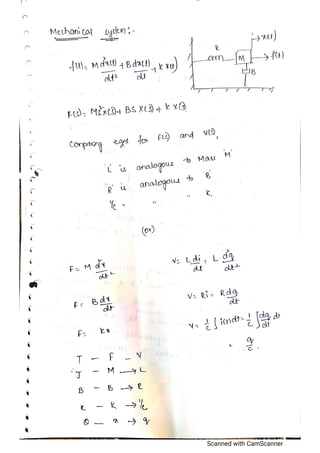 Mechanical system:-
x(t)
K
M
f(t)
B
f(t) = M d²x(t)/dt² + B dx(t)/dt + k x(t)
F(s) = Ms²X(s) + BS X(s) + K X(s)
Comparing eqns for F(s) and V(s),
'L' is analogous to Mass 'M'
'R' is analogous to B'
1/c " " K.
(or)
F = M d²x/dt² V = L di/dt = L d²q/dt²
F = B dx/dt V = Ri = R dq/dt
F = kx V = 1/c ∫ i(t) dt = 1/c ∫ dq/dt dt
= q/c.
T - F - V
J - M → L
B - B → R
K - K → 1/c
θ - x → q
Scanned with CamScanner